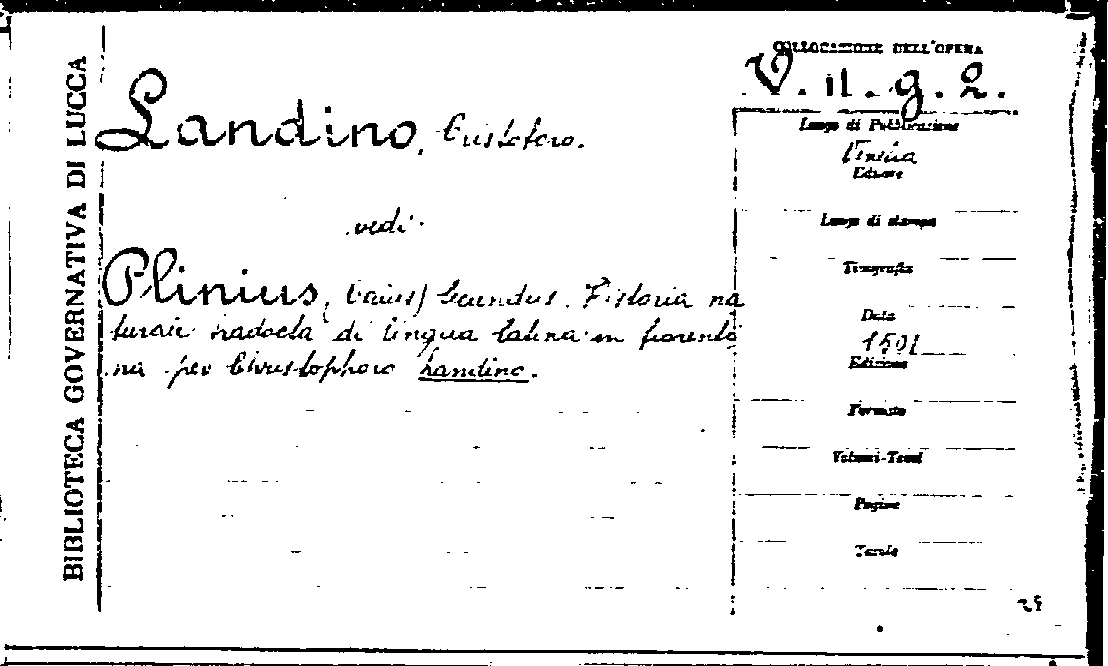 BIBLIOTECA GOVERNATIVA DI LUCCA
COLLOCAZIONE DELL'OPERA
V. II. g. 2.
Landino, Cristoforo.
vedi
Plinius, (Caius) Secundus. Historia na
turale tradocta di lingua latina in fiorenti
na per Christophoro Landino.
Luogo di Pubblicazione
Venezia
Editore
Luogo di stampa
Tipografia
Data
1501
Edizione
Formato
Volumi-Tomi
Pagine
Tavole